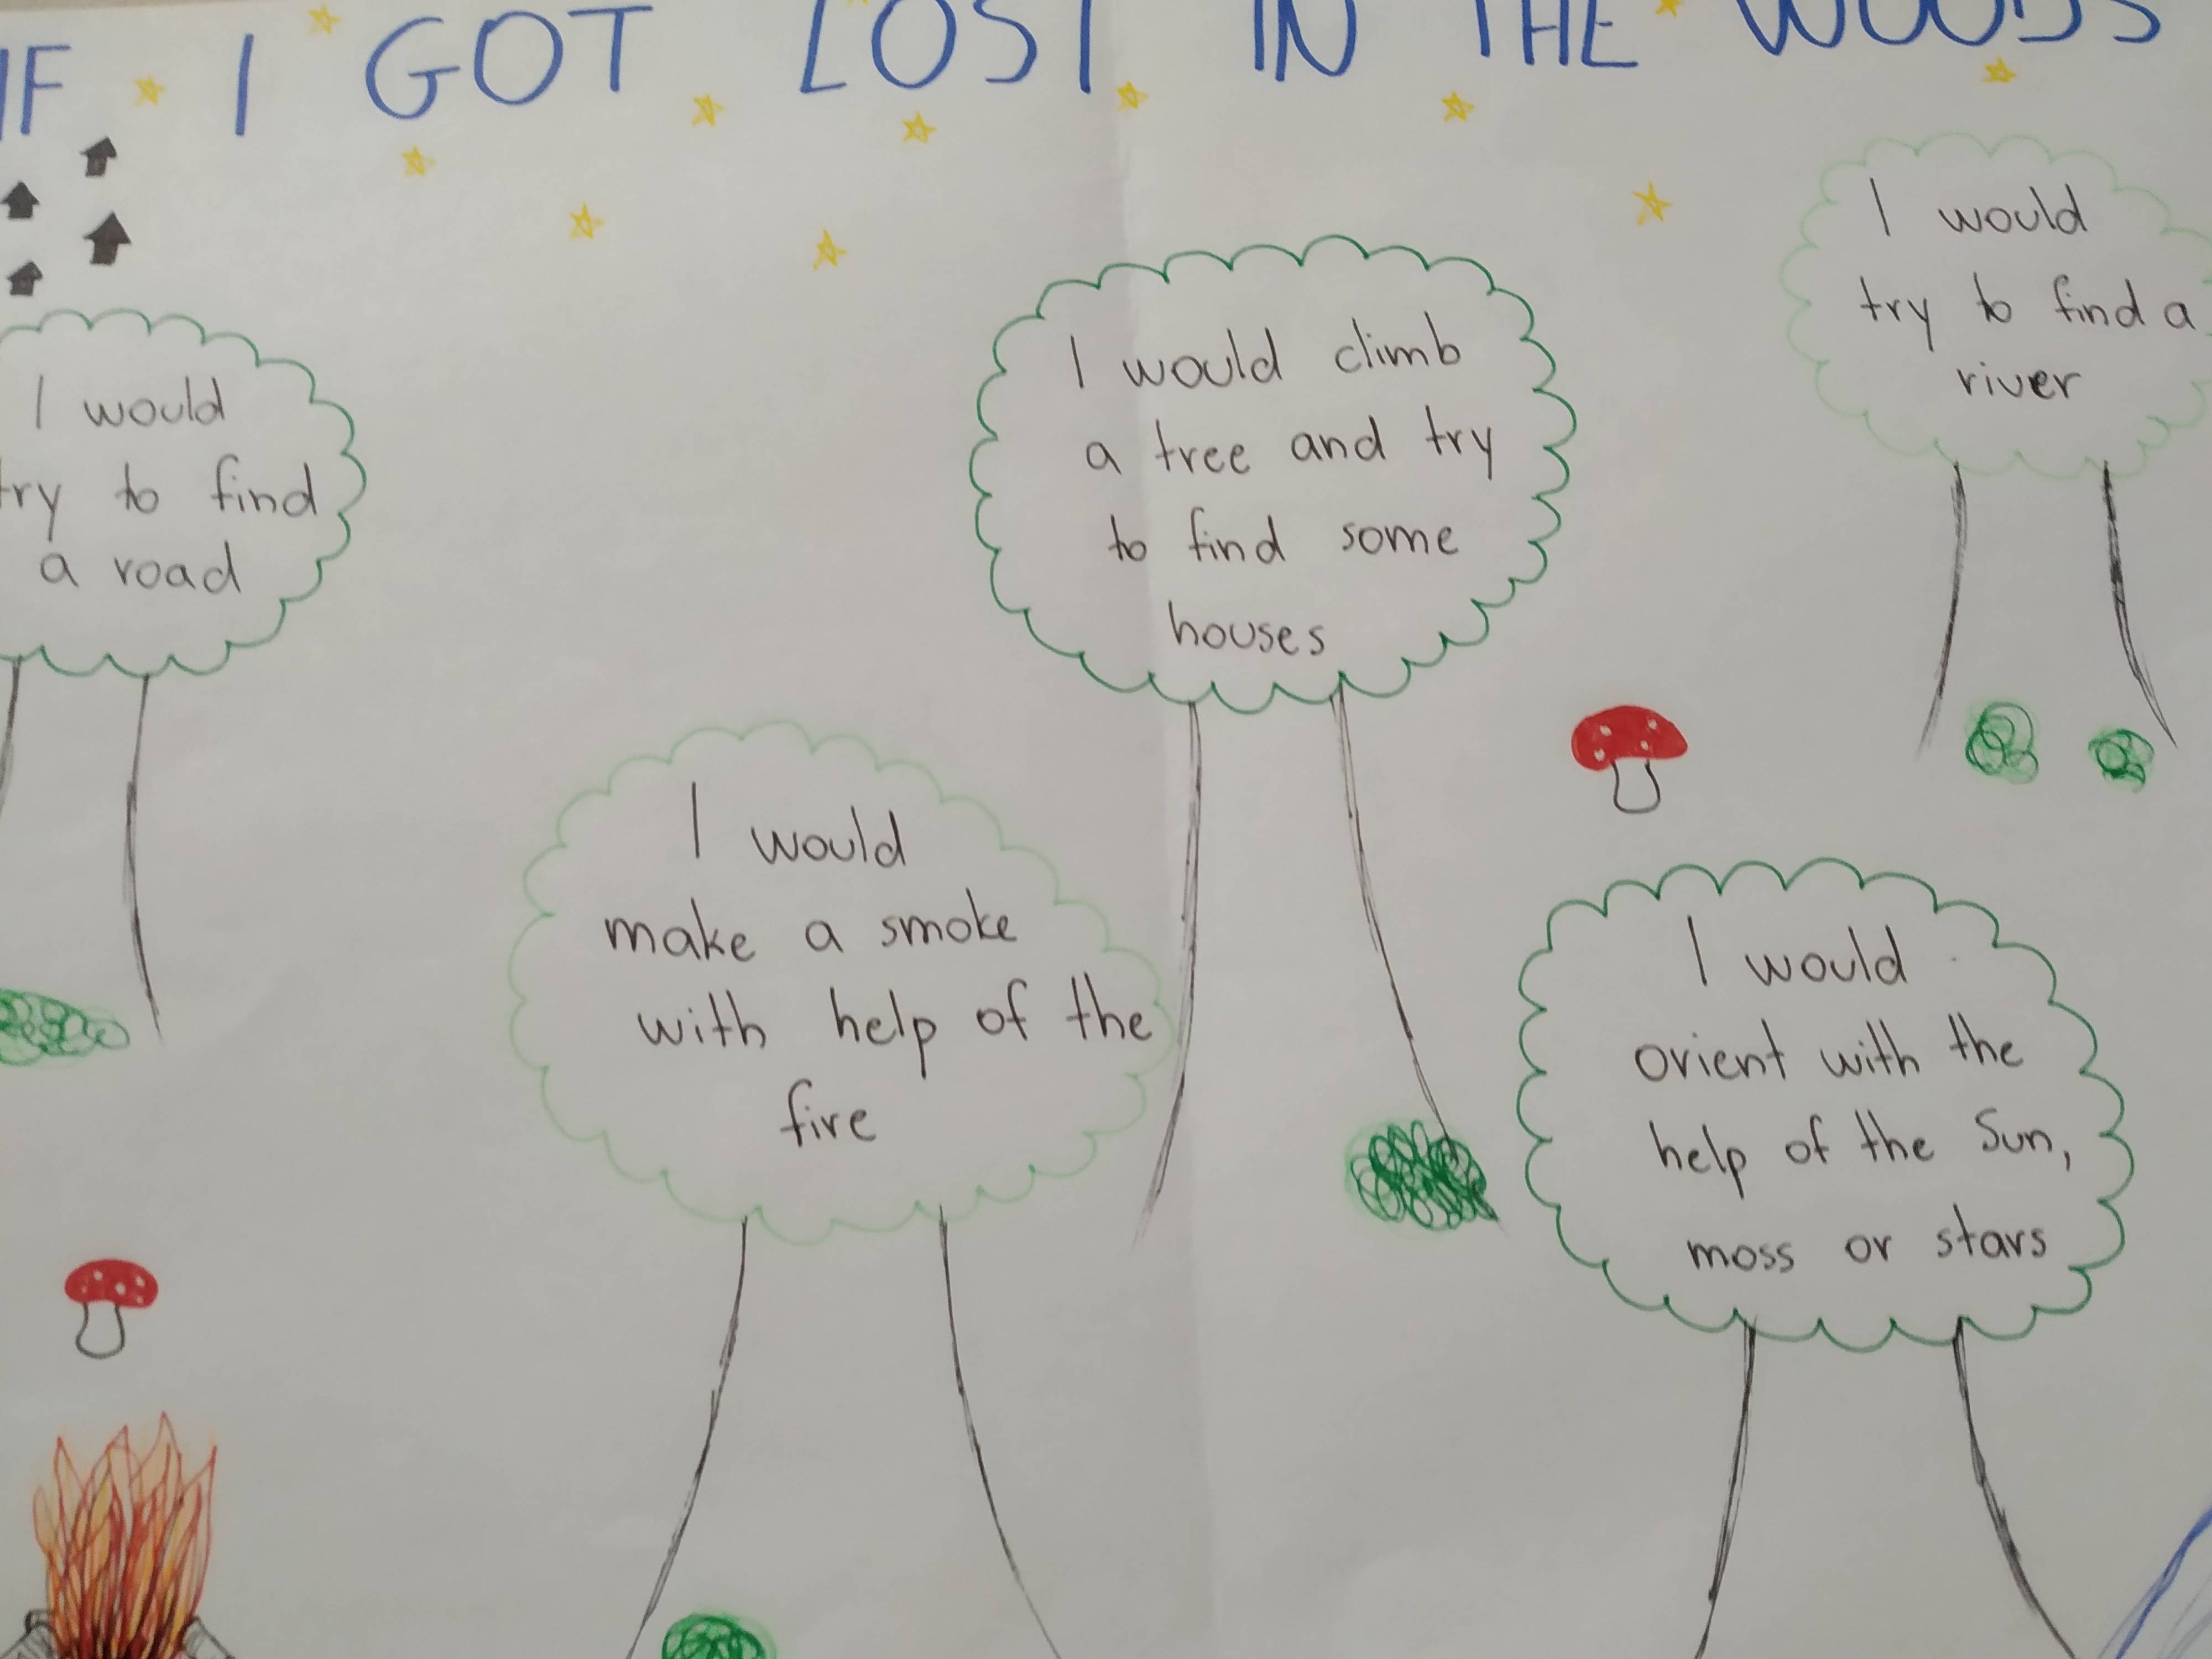 IF I GOT LOST IN THE WOODS
I would
try to find
a road
I would climb
a tree and try
to find some
houses
I would
try to find a
river
I would
make a smoke
with help of the
fire
I would
orient with the
help of the Sun,
moss or stars